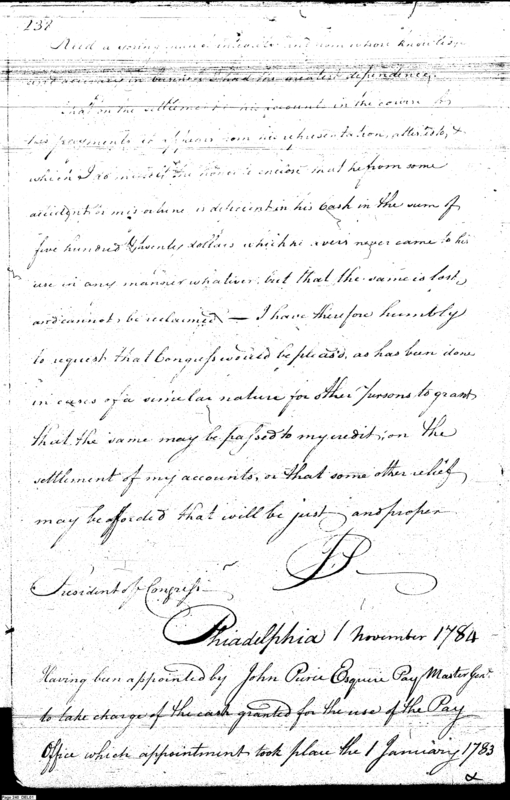 238
Reed a young man of integrity and from whose knowledge
and accuracy in business I had the greatest dependence,
That on the settlement of his account in the course of
his payments it appears from his representation, attested, &
which I do myself the honor to enclose that he from some
accident or misfortune is deficient in his Cash in the sum of
five hundred & seventy dollars which he avers never came to his
use in any manner whatever, but that the same is lost,
and cannot be reclaimed — I have therefore humbly
to request that Congress would be pleas'd, as has been done
in cases of a similar nature for other persons to grant
that the same may be passed to my credit, on the
settlement of my accounts, or that some other relief
may be afforded that will be just and proper
J.P.
President of Congress
Phiadelphia 1 November 1784
Having been appointed by John Pierce Esquire Pay Master Genl.
to take charge of the cash granted for the use of the Pay
Office which appointment took place the 1 January 1783
&
Page 246